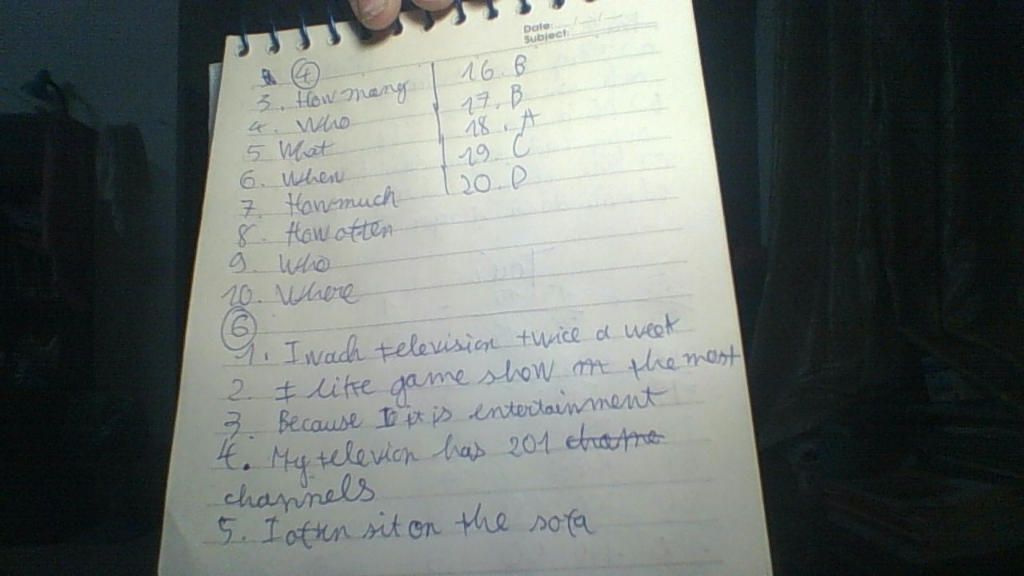 Date: / /
Subject:
④
3. How many
4. Who
5 What
6. When
7. How much
8. How often
9. Who
10. Where
16. B
17. B
18. A
19. C
20. D
⑥
1. I wach television twice a week
2. I like game show the most
3. Because it is entertainment
4. My televion has 201
channels
5. I often sit on the sofa